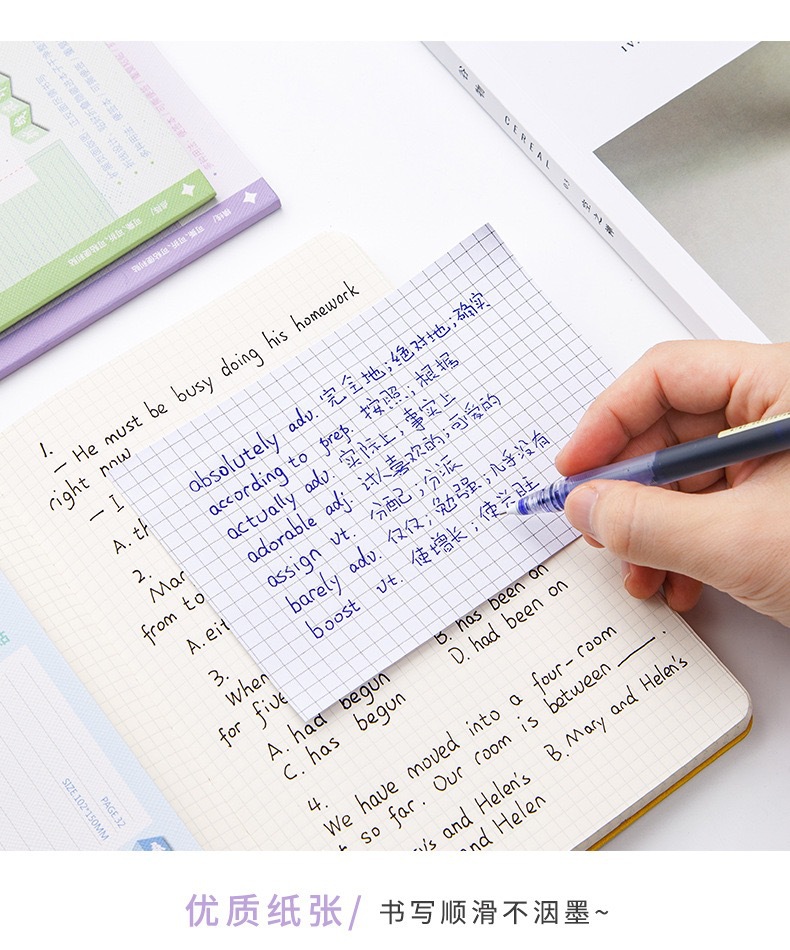 谷物 CEREAL 01 空之美
1.
— He must be busy doing his homework
right now
— I
A. th
2.
Mar
from to
A. eit
absolutely adv. 完全地;绝对地;确实
according to prep. 按照;根据
actually adv. 实际上;事实上
adorable adj. 讨人喜欢的;可爱的
assign vt. 分配;分派
barely adv. 仅仅;勉强;几乎没有
boost vt. 使增长;使兴旺
3.
When
for five
A. had begun
B. has been on
C. has begun
D. had been on
4.
We have moved into a four-room
t so far. Our room is between ____.
y's and Helen's
B. Mary and Helen's
nd Helen
PAGE.32
SIZE.102*150MM
优质纸张/ 书写顺滑不洇墨~